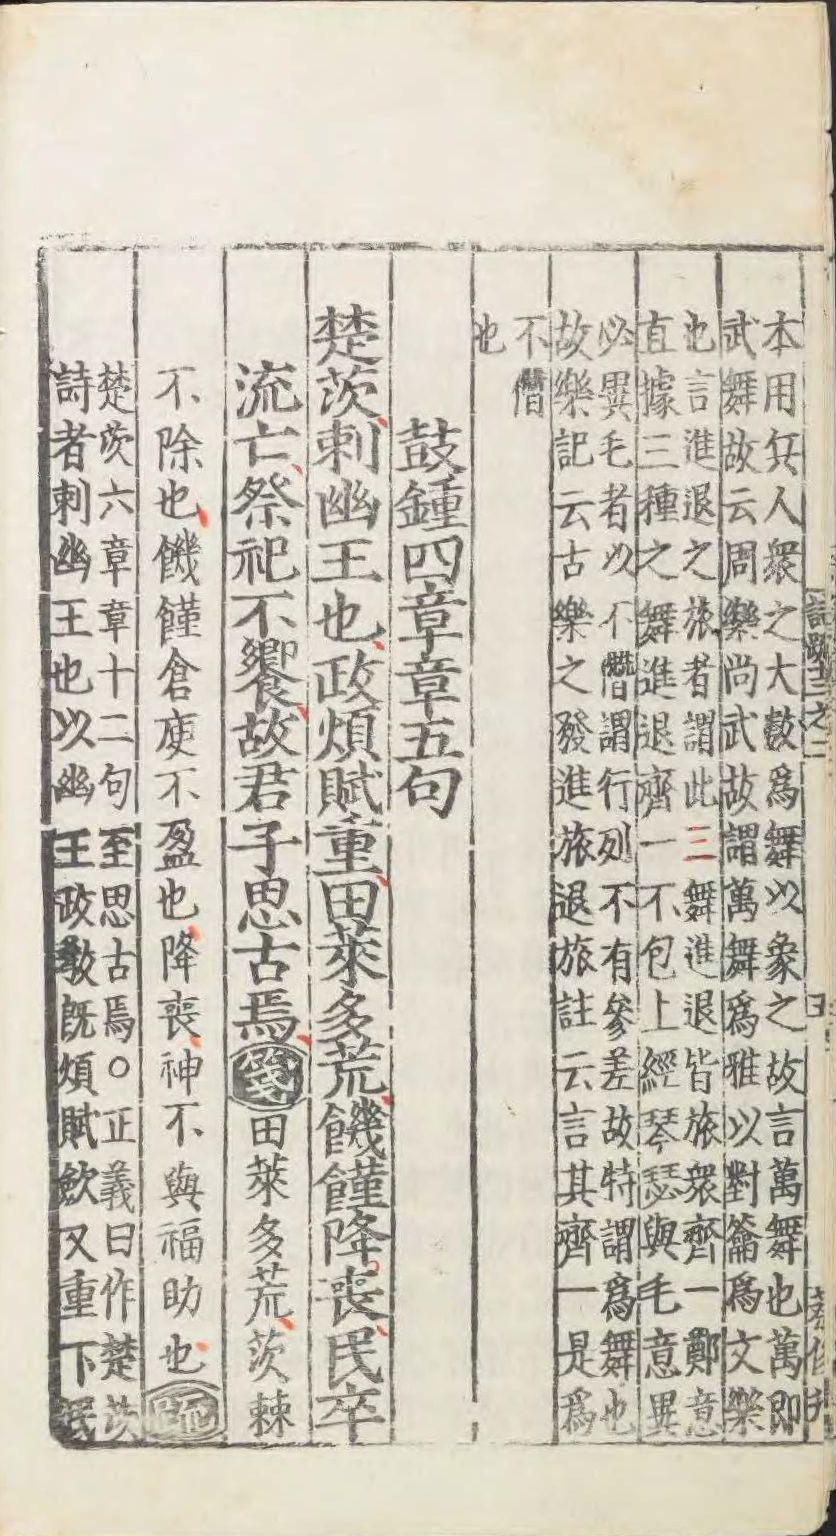 本用兵人衆之大數爲舞以象之故言萬舞也萬即
武舞故云周樂尚武故謂萬舞爲雅以對籥爲文樂
也言進退之旅者謂此三舞進退皆旅衆齊一鄭意
直據三種之舞進退齊一不包上經琴瑟與毛意異
必異毛者以不僭謂行列不有參差故特謂爲舞也
故樂記云古樂之發進旅退旅註云言其齊一是爲
不僭
也
鼓鍾四章章五句
楚茨刺幽王也政煩賦重田萊多荒饑饉降喪民卒
流亡祭祀不饗故君子思古焉箋田萊多荒茨棘
不除也饑饉倉庾不盈也降喪神不與福助也疏
楚茨六章章十二句至思古焉○正義曰作楚茨
詩者刺幽王也以幽王政敎既煩賦斂又重下民